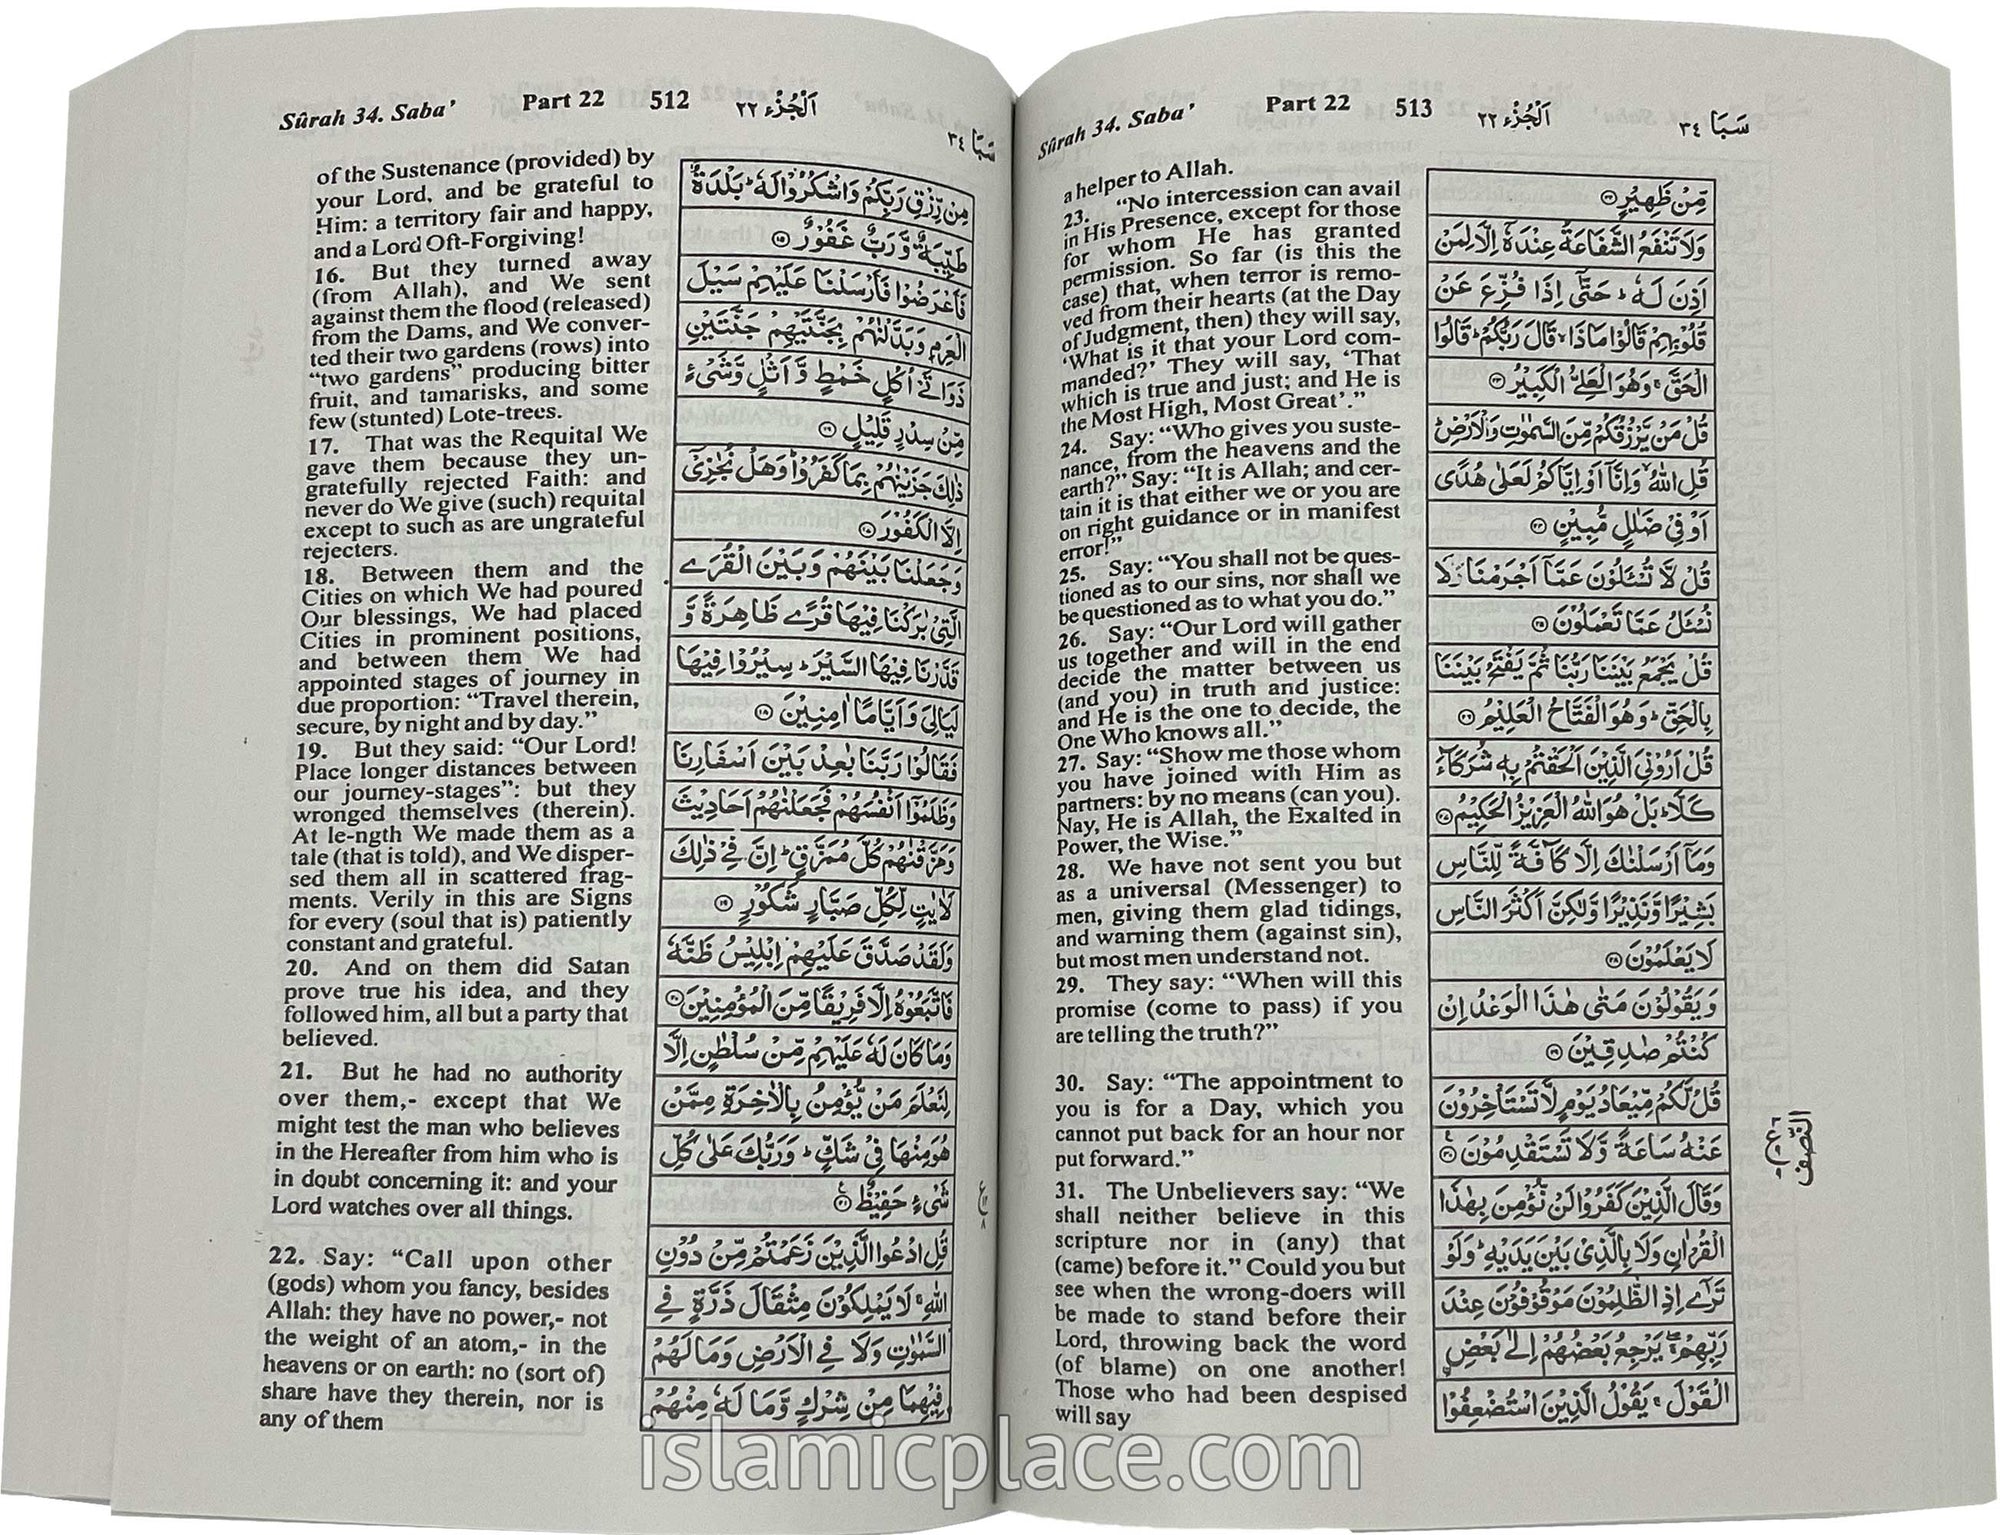 Sûrah 34. Saba’ Part 22 512 اَلْجُزْء ٢٢ سَبَا ٣٤
of the Sustenance (provided) by
your Lord, and be grateful to
Him: a territory fair and happy,
and a Lord Oft-Forgiving!
16. But they turned away
(from Allah), and We sent
against them the flood (released)
from the Dams, and We conver-
ted their two gardens (rows) into
“two gardens” producing bitter
fruit, and tamarisks, and some
few (stunted) Lote-trees.
17. That was the Requital We
gave them because they un-
gratefully rejected Faith: and
never do We give (such) requital
except to such as are ungrateful
rejecters.
18. Between them and the
Cities on which We had poured
Our blessings, We had placed
Cities in prominent positions,
and between them We had
appointed stages of journey in
due proportion: “Travel therein,
secure, by night and by day.”
19. But they said: “Our Lord!
Place longer distances between
our journey-stages”: but they
wronged themselves (therein).
At le-ngth We made them as a
tale (that is told), and We disper-
sed them all in scattered frag-
ments. Verily in this are Signs
for every (soul that is) patiently
constant and grateful.
20. And on them did Satan
prove true his idea, and they
followed him, all but a party that
believed.
21. But he had no authority
over them,- except that We
might test the man who believes
in the Hereafter from him who is
in doubt concerning it: and your
Lord watches over all things.
22. Say: “Call upon other
(gods) whom you fancy, besides
Allah: they have no power,- not
the weight of an atom,- in the
heavens or on earth: no (sort of)
share have they therein, nor is
any of them
مِنْ رِّزْقِ رَبِّكُمْ وَاشْكُرُوْا لَهٗ ؕ بَلْدَةٌ
طَيِّبَةٌ وَّرَبٌّ غَفُوْرٌ ۝١٥
فَاَعْرَضُوْا فَاَرْسَلْنَا عَلَيْهِمْ سَيْلَ
الْعَرِمِ وَبَدَّلْنٰهُمْ بِجَنَّتَيْهِمْ جَنَّتَيْنِ
ذَوَاتَيْ اُكُلٍ خَمْطٍ وَّاَثْلٍ وَّشَيْءٍ
مِّنْ سِدْرٍ قَلِيْلٍ ۝١٦
ذٰلِكَ جَزَيْنٰهُمْ بِمَا كَفَرُوْا ؕ وَهَلْ نُجٰزِيْٓ
اِلَّا الْكَفُوْرَ ۝١٧
وَجَعَلْنَا بَيْنَهُمْ وَبَيْنَ الْقُرَى
الَّتِيْ بٰرَكْنَا فِيْهَا قُرًى ظَاهِرَةً وَّ
قَدَّرْنَا فِيْهَا السَّيْرَ ؕ سِيْرُوْا فِيْهَا
لَيَالِيَ وَاَيَّامًا اٰمِنِيْنَ ۝١٨
فَقَالُوْا رَبَّنَا بٰعِدْ بَيْنَ اَسْفَارِنَا
وَظَلَمُوْٓا اَنْفُسَهُمْ فَجَعَلْنٰهُمْ اَحَادِيْثَ
وَمَزَّقْنٰهُمْ كُلَّ مُمَزَّقٍ ؕ اِنَّ فِيْ ذٰلِكَ
لَاٰيٰتٍ لِّكُلِّ صَبَّارٍ شَكُوْرٍ ۝١٩
وَلَقَدْ صَدَّقَ عَلَيْهِمْ اِبْلِيْسُ ظَنَّهٗ
فَاتَّبَعُوْهُ اِلَّا فَرِيْقًا مِّنَ الْمُؤْمِنِيْنَ ۝٢٠
وَمَا كَانَ لَهٗ عَلَيْهِمْ مِّنْ سُلْطٰنٍ اِلَّا
لِنَعْلَمَ مَنْ يُّؤْمِنُ بِالْاٰخِرَةِ مِمَّنْ
هُوَ مِنْهَا فِيْ شَكٍّ ؕ وَرَبُّكَ عَلٰى كُلِّ
شَيْءٍ حَفِيْظٌ ۝٢١
قُلِ ادْعُوا الَّذِيْنَ زَعَمْتُمْ مِّنْ دُوْنِ
اللّٰهِ ۚ لَا يَمْلِكُوْنَ مِثْقَالَ ذَرَّةٍ فِي
السَّمٰوٰتِ وَلَا فِي الْاَرْضِ وَمَا لَهُمْ
فِيْهِمَا مِنْ شِرْكٍ وَّمَا لَهٗ مِنْهُمْ
Sûrah 34. Saba’ Part 22 513 اَلْجُزْء ٢٢ سَبَا ٣٤
a helper to Allah.
23. “No intercession can avail
in His Presence, except for those
for whom He has granted
permission. So far (is this the
case) that, when terror is remo-
ved from their hearts (at the Day
of Judgment, then) they will say,
‘What is it that your Lord com-
manded?’ They will say, ‘That
which is true and just; and He is
the Most High, Most Great’.”
24. Say: “Who gives you suste-
nance, from the heavens and the
earth?” Say: “It is Allah; and cer-
tain it is that either we or you are
on right guidance or in manifest
error!”
25. Say: “You shall not be ques-
tioned as to our sins, nor shall we
be questioned as to what you do.”
26. Say: “Our Lord will gather
us together and will in the end
decide the matter between us
(and you) in truth and justice:
and He is the one to decide, the
One Who knows all.”
27. Say: “Show me those whom
you have joined with Him as
partners: by no means (can you).
Nay, He is Allah, the Exalted in
Power, the Wise.”
28. We have not sent you but
as a universal (Messenger) to
men, giving them glad tidings,
and warning them (against sin),
but most men understand not.
29. They say: “When will this
promise (come to pass) if you
are telling the truth?”
30. Say: “The appointment to
you is for a Day, which you
cannot put back for an hour nor
put forward.”
31. The Unbelievers say: “We
shall neither believe in this
scripture nor in (any) that
(came) before it.” Could you but
see when the wrong-doers will
be made to stand before their
Lord, throwing back the word
(of blame) on one another!
Those who had been despised
will say
مِّنْ ظَهِيْرٍ ۝٢٢
وَلَا تَنْفَعُ الشَّفَاعَةُ عِنْدَهٗٓ اِلَّا لِمَنْ
اَذِنَ لَهٗ ؕ حَتّٰٓى اِذَا فُزِّعَ عَنْ
قُلُوْبِهِمْ قَالُوْا مَاذَا ۙ قَالَ رَبُّكُمْ ؕ قَالُوا
الْحَقَّ ۚ وَهُوَ الْعَلِيُّ الْكَبِيْرُ ۝٢٣
قُلْ مَنْ يَّرْزُقُكُمْ مِّنَ السَّمٰوٰتِ وَالْاَرْضِ ؕ
قُلِ اللّٰهُ ۙ وَاِنَّآ اَوْ اِيَّاكُمْ لَعَلٰى هُدًى
اَوْ فِيْ ضَلٰلٍ مُّبِيْنٍ ۝٢٤
قُلْ لَّا تُسْـَٔلُوْنَ عَمَّآ اَجْرَمْنَا وَلَا
نُسْـَٔلُ عَمَّا تَعْمَلُوْنَ ۝٢٥
قُلْ يَجْمَعُ بَيْنَنَا رَبُّنَا ثُمَّ يَفْتَحُ بَيْنَنَا
بِالْحَقِّ ؕ وَهُوَ الْفَتَّاحُ الْعَلِيْمُ ۝٢٦
قُلْ اَرُوْنِيَ الَّذِيْنَ اَلْحَقْتُمْ بِهٖ شُرَكَآءَ
كَلَّا ؕ بَلْ هُوَ اللّٰهُ الْعَزِيْزُ الْحَكِيْمُ ۝٢٧
وَمَآ اَرْسَلْنٰكَ اِلَّا كَآفَّةً لِّلنَّاسِ
بَشِيْرًا وَّنَذِيْرًا وَّلٰكِنَّ اَكْثَرَ النَّاسِ
لَا يَعْلَمُوْنَ ۝٢٨
وَيَقُوْلُوْنَ مَتٰى هٰذَا الْوَعْدُ اِنْ
كُنْتُمْ صٰدِقِيْنَ ۝٢٩
قُلْ لَّكُمْ مِّيْعَادُ يَوْمٍ لَّا تَسْتَاْخِرُوْنَ
عَنْهُ سَاعَةً وَّلَا تَسْتَقْدِمُوْنَ ۝٣٠
وَقَالَ الَّذِيْنَ كَفَرُوْا لَنْ نُّؤْمِنَ بِهٰذَا
الْقُرْاٰنِ وَلَا بِالَّذِيْ بَيْنَ يَدَيْهِ ؕ وَلَوْ
تَرٰٓى اِذِ الظّٰلِمُوْنَ مَوْقُوْفُوْنَ عِنْدَ
رَبِّهِمْ ۚ يَرْجِعُ بَعْضُهُمْ اِلٰى بَعْضِ
الْقَوْلَ ۚ يَقُوْلُ الَّذِيْنَ اسْتُضْعِفُوْا
النّصف
islamicplace.com